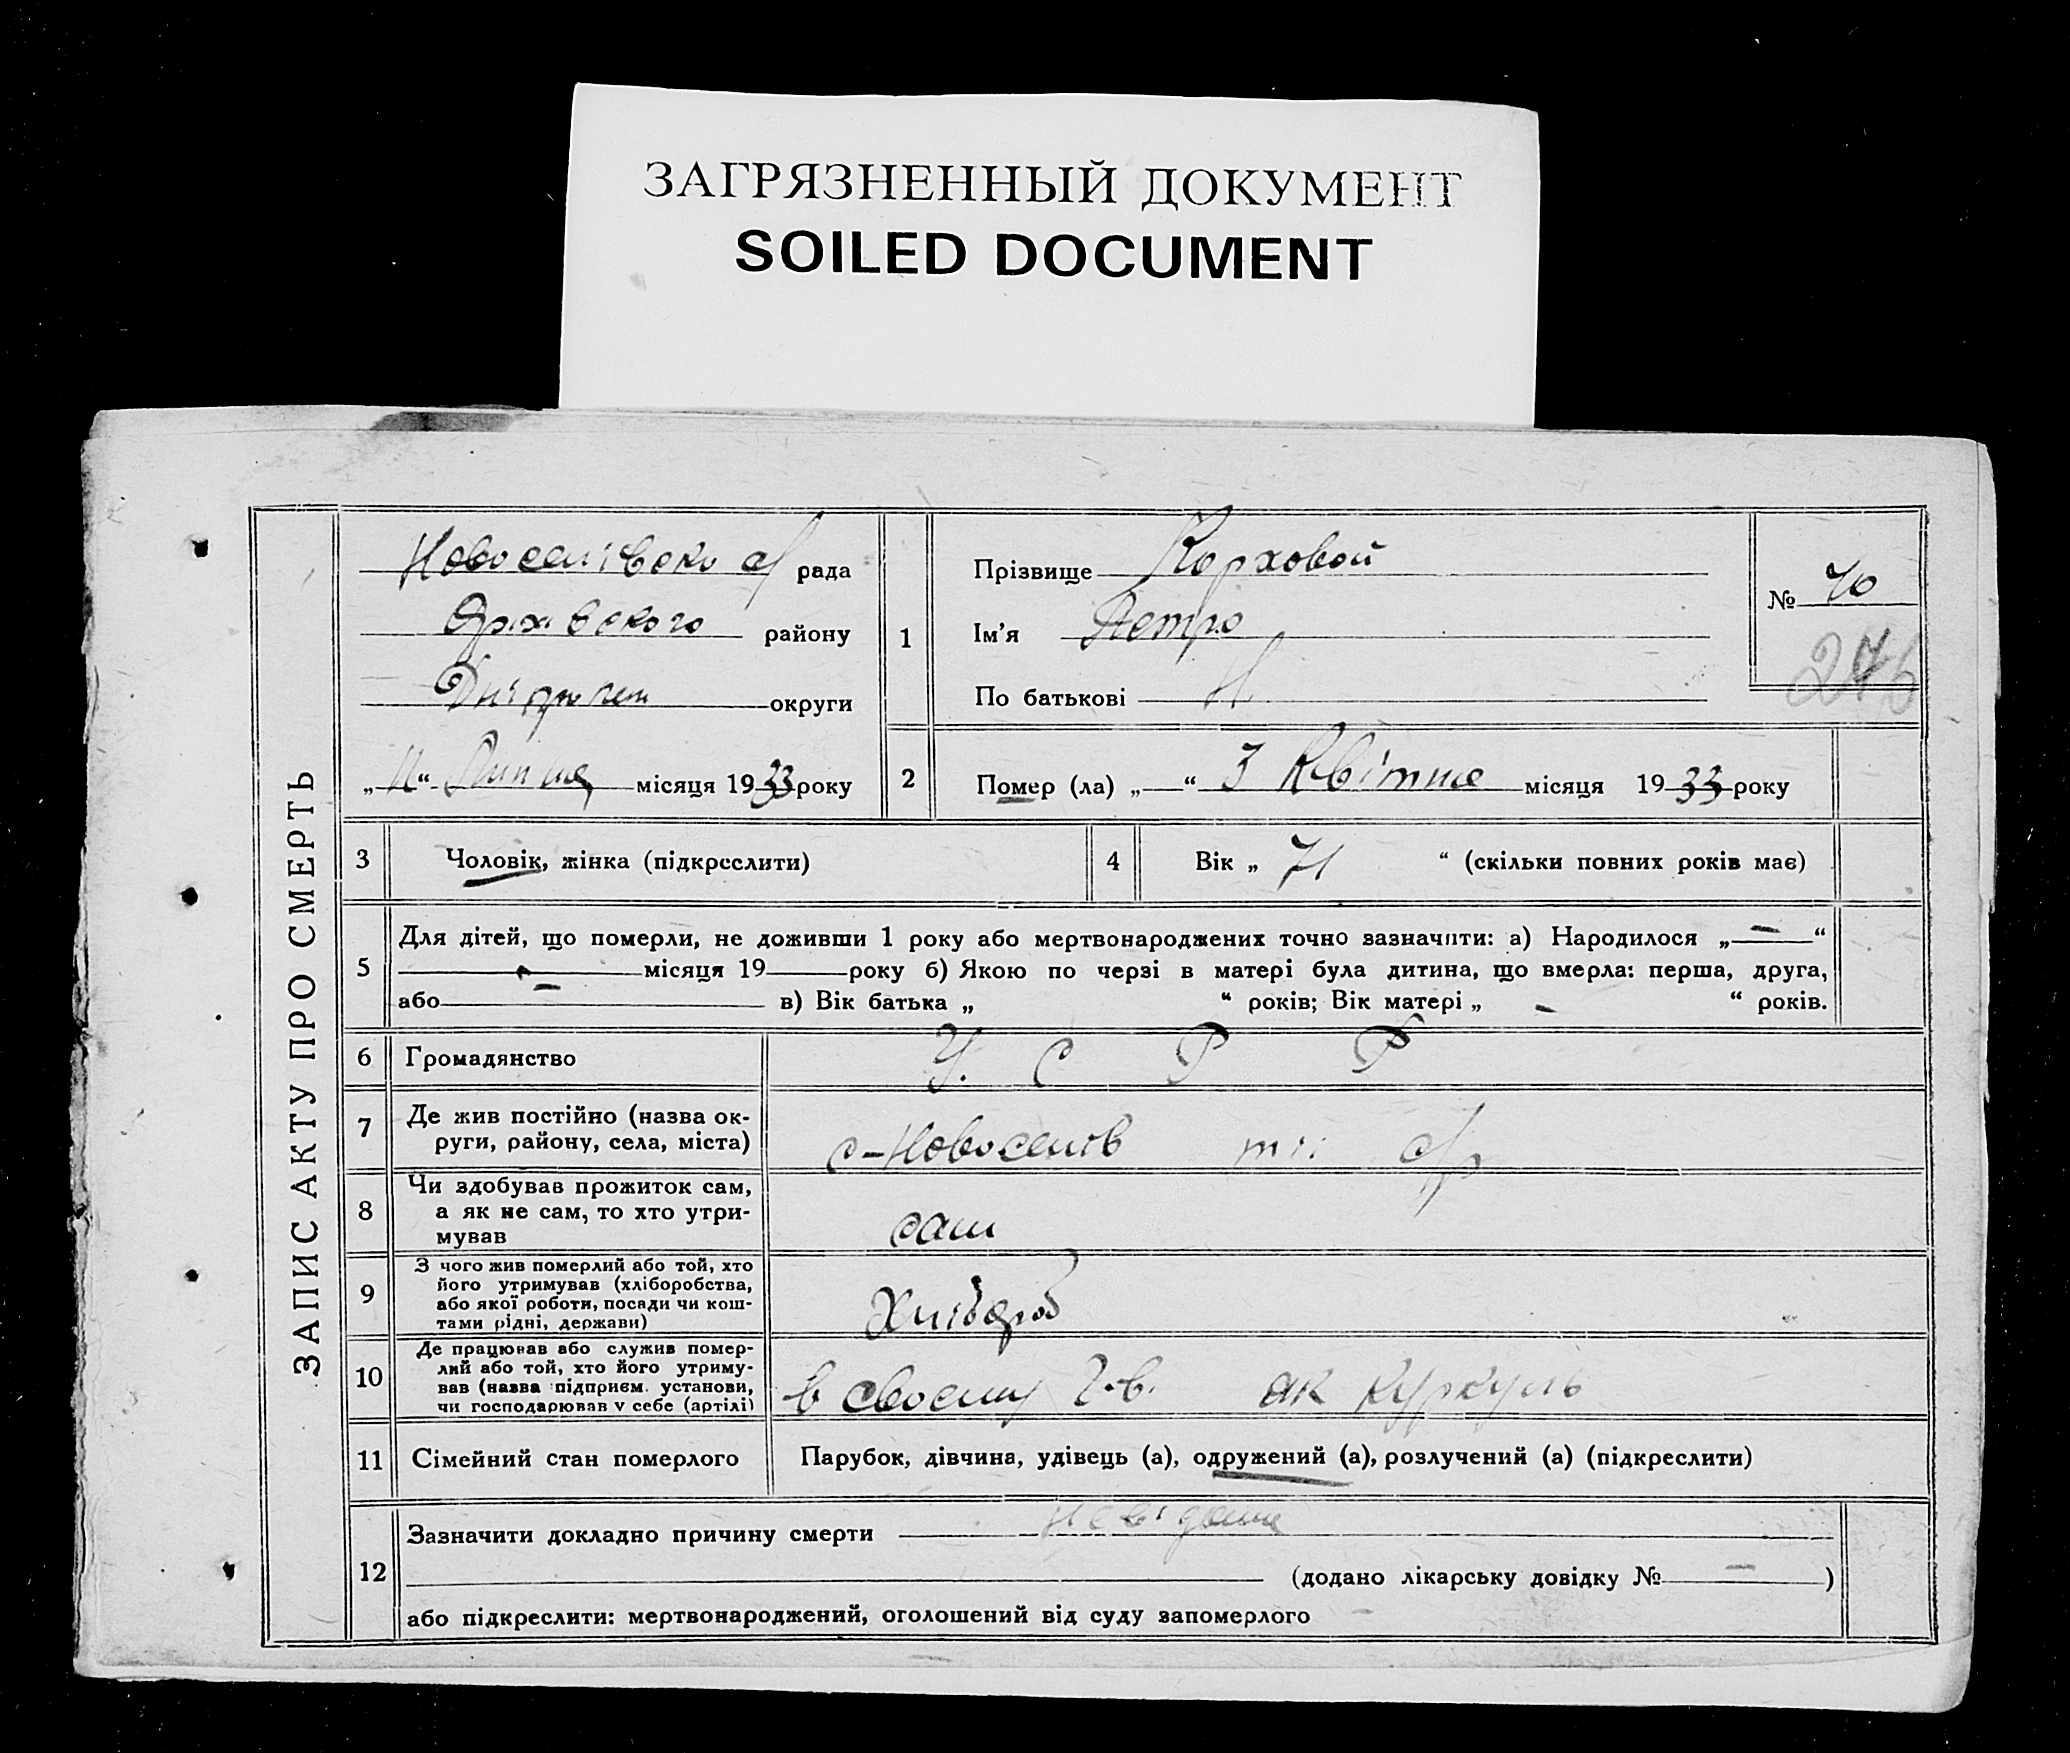 ЗАГРЯЗНЕННЫЙ ДОКУМЕНТ
SOILED DOCUMENT
ЗАПИС АКТУ ПРО СМЕРТЬ
Новоселівсько с/ рада
Оріхівского району
округи
„11“ Липня місяця 1933 року
1
Прізвище Корховой
Ім'я Петро
По батькові Н
№ 70
276
2
Помер (ла) „—“ 3 Квітня місяця 1933 року
3
Чоловік, жінка (підкреслити)
4
Вік „ 71 “ (скільки повних років має)
5
Для дітей, що померли, не доживши 1 року або мертвонароджених точно зазначити: а) Народилося „—“
місяця 19 року б) Якою по черзі в матері була дитина, що вмерла: перша, друга,
або — в) Вік батька „ “ років; Вік матері „ - “ років.
6
Громадянство
У. С Р Р
7
Де жив постійно (назва ок-
руги, району, села, міста)
с-Новоселів тії с/р
8
Чи здобував прожиток сам,
а як не сам, то хто утри-
мував
сам
9
З чого жив померлий або той, хто
його утримував (хліборобства,
або якої роботи, посади чи кош-
тами рідні, держави)
Хлібороб
10
Де працював або служив помер-
лий або той, хто його утриму-
вав (назва підприєм. установи,
чи господарював у себе (артілі)
в своему г-в. як куркуль
11
Сімейний стан померлого
Парубок, дівчина, удівець (а), одружений (а), розлучений (а) (підкреслити)
12
Зазначити докладно причину смерти Невідоме
(додано лікарську довідку № — )
або підкреслити: мертвонароджений, оголошений від суду запомерлого